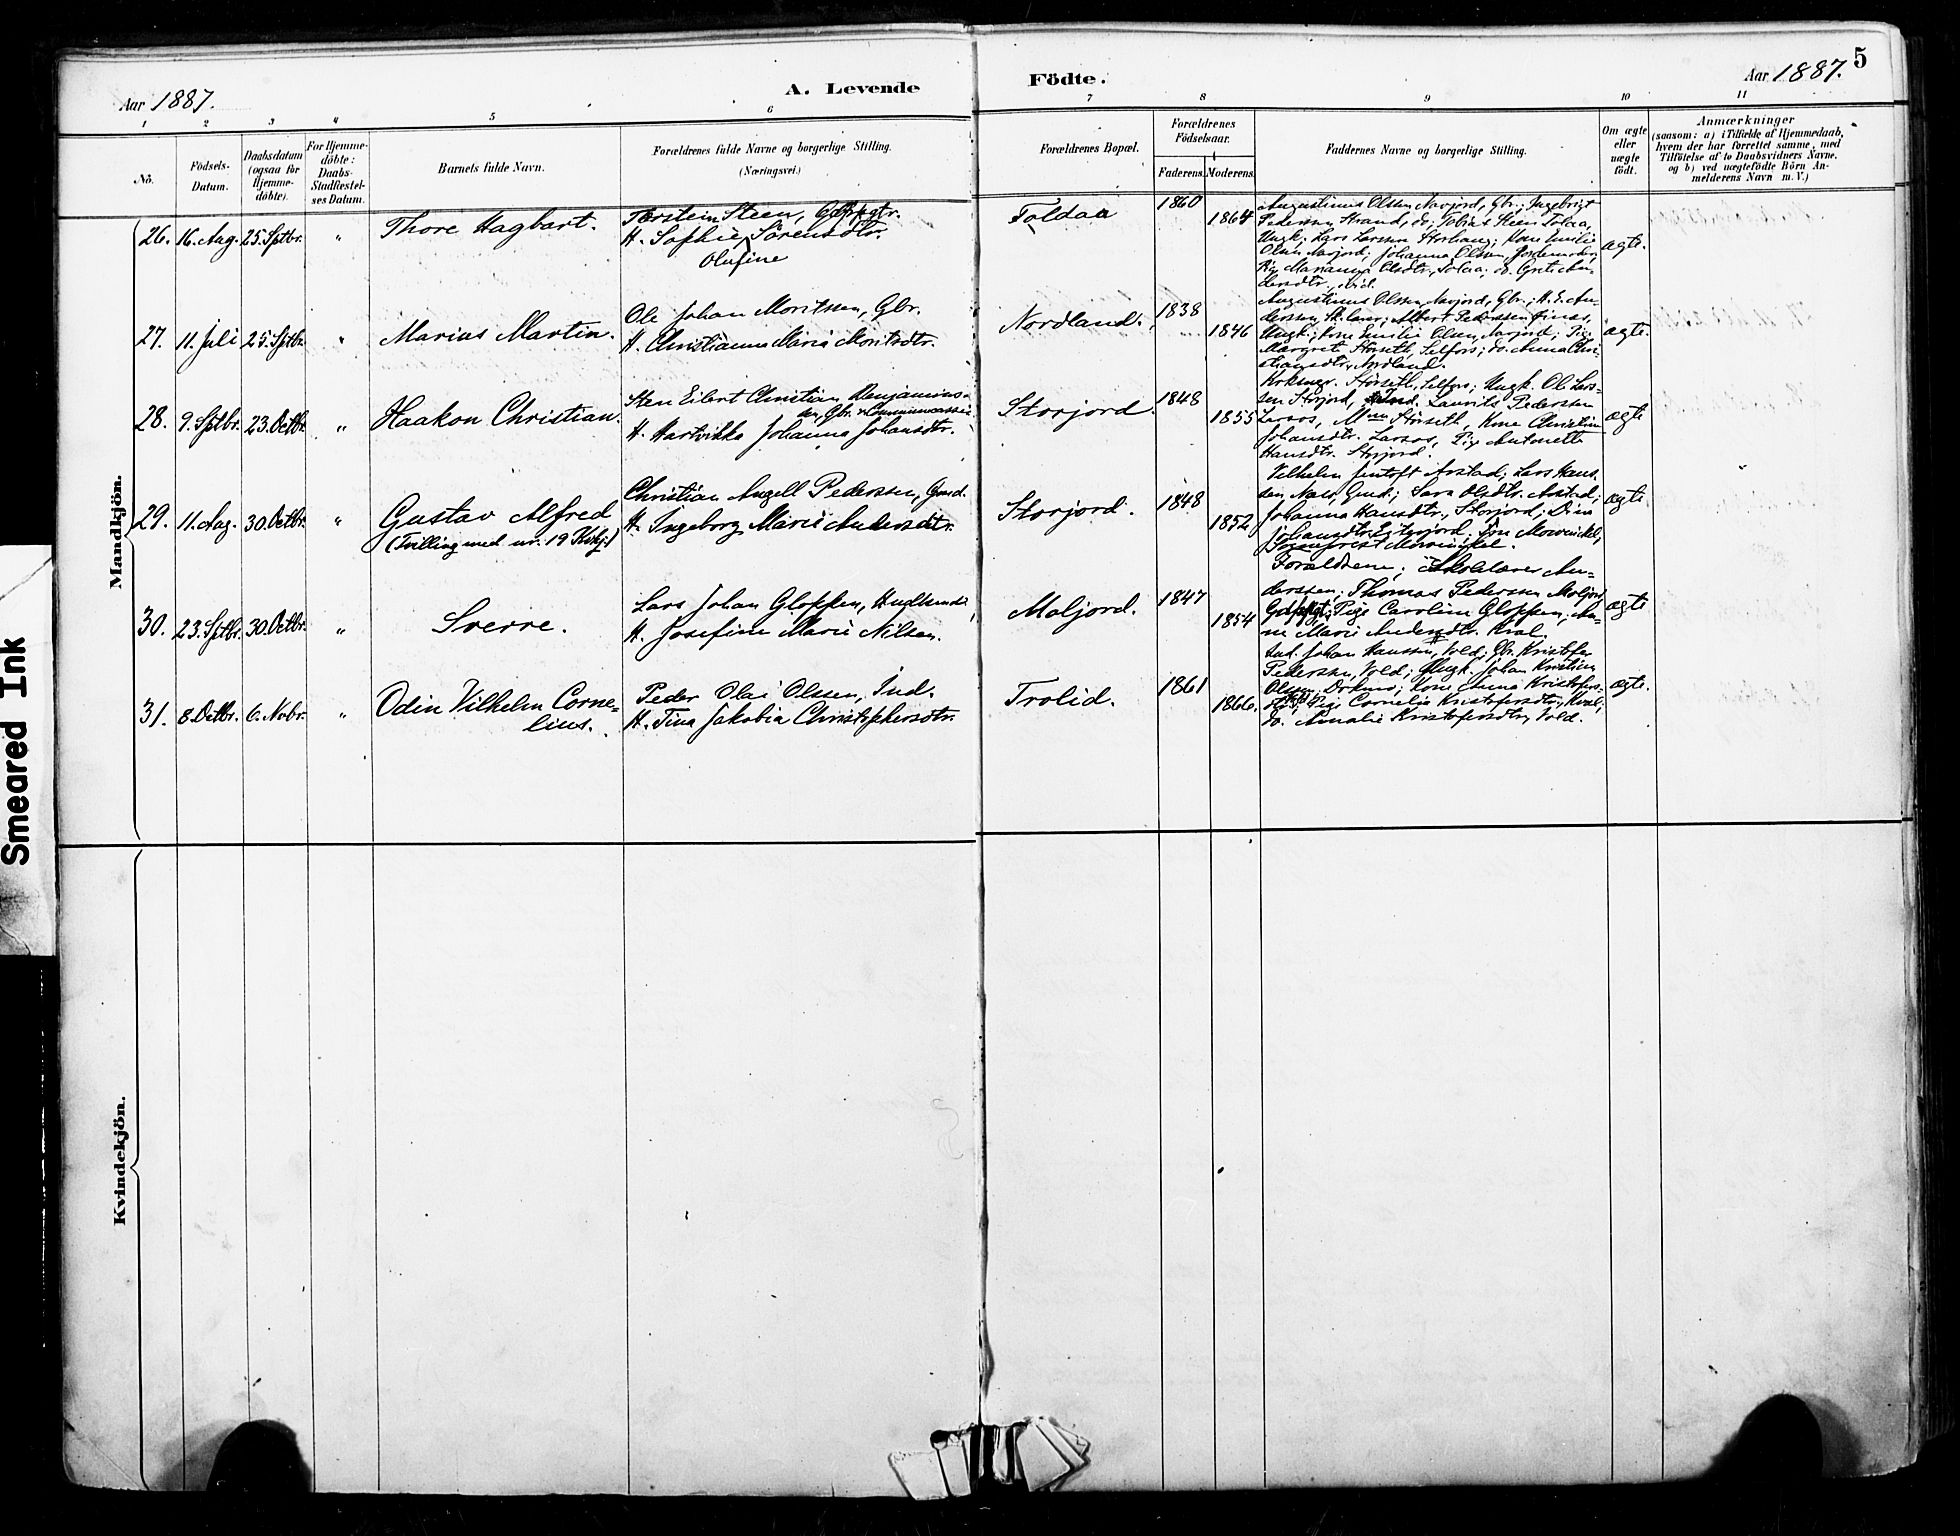 Aar 1887.
A. Levende
Födte.
Aar 1887. 5
1 2 3 4 5 6 7 8 9 10 11
Nô.
Födsels-Datum.
Daabsdatum (ogsaa for Hjemme-döbte).
For Hjemme-döbte: Daabs-Stadfæstel-ses Datum.
Barnets fulde Navn.
Forældrenes fulde Navne og borgerlige Stilling.
(Næringsvei.)
Forældrenes Bopæl.
Forældrenes Födselsaar.
Faderens. Moderens.
Faddernes Navne og borgerlige Stilling.
Om ægte eller uægte födt.
Anmærkninger
(saasom: a) i Tilfælde af Hjemmedaab,
hvem der har forrettet samme, med
Tilföielse af to Daabsvidners Navne,
og b) ved uægtefödte Börn An-
melderens Navn m. V.)
Mandkjön.
26. 16. Aug. 25. Sptbr. " Thore Hagbart.
Torstein Steen,
H. Sofhie Sörensdtr.
Olufine
Foldaa 1860 1864
Augustinus Olssen Navjord, Gbr.; Ingebrigt
Pedersen Strand, do; Tobias Steen
Ungk; Lars Larssen Storhaug; Kone Emilie
Olsen Navjord; Johanna Olssen,
ægte.
27. 11. Juli 25. Sptbr. " Marius Martin.
Ole Johan Moritssen, Gbr.
H. Christianna Marie Moritsdtr.
Nordland. 1838 1846
Augustinus Olssen Navjord, Gbr.; H. E. An-
derssen, Albert Pederssen
Ungk; Kone Emilie Olsen, Navjord; Pige
Margrete Störseth, Selfors; do. Anna Chri-
stiansdtr., Nordland.
ægte.
28. 9. Sptbr. 23. Octbr. " Haakon Christian.
Sten Eilert Christian Benjamins-
sen, Gbr.
H. Hartvikka Johanna Johansdtr.
Storjord. 1848 1855
Störseth, Selfors; Ungk. Ole Lars-
sen Storjord, Ind. Laurits Pederssen
Larsos, Störseth, Kone Christine
Johansdtr. Larsos, Pige Antonette
Hansdtr. Storjord.
ægte
29. 11. Aug. 30. Octbr. " Gustav Alfred
(Tvilling med nr. 19 Kvkj.)
Christian Angell Pederssen, Gmd.
H. Ingeborg Marie Andersdtr.
Storjord. 1848 1852
Vilhelm Jentoft Arstad; Lars Hans-
sen Lara Olsdtr. Arstad;
Johanna Hansdtr., Storjord;
Johansdtr. Eiterjord.
ægte
30. 23. Sptbr. 30. Octbr. " Sverre.
Lars Johan Gloppen,
H. Josefine Marie Nilsen.
Moljord. 1847 1854
Forældrene; An-
derssen; Thomas Pederssen Moljord,
Pige Caroline Gloppen, An-
ne Marie Andersdtr. Kval.
ægte
31. 8. Octbr. 6. Novbr. " Odin Vilhelm Corne-
lius.
Peder Olai Olssen, Ind.
H. Tina Jakobia Christophersdtr.
Trolid. 1861 1866.
Ind. Johan Hanssen, Vold; Gbr. Kristofer
Pederssen, Vold; Ungk. Johan Kristian
Olssen, Kone Anna Kristofers-
Pige Cornelie Kristofersdtr., Kval;
do. Amalie Kristofersdtr., Vold.
ægte.
Kvindekjön.
Smeared Ink